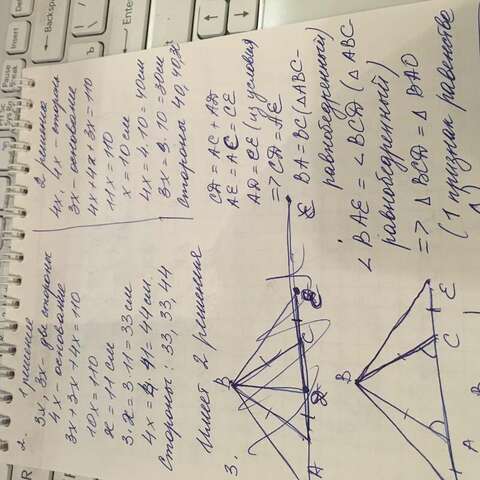 2.
1 решение
3x, 3x - две стороны
4x - основание
3x + 3x + 4x = 110
10x = 110
x = 11 см
3·x = 3·11 = 33 см
4x = 4·11 = 44 см.
Стороны: 33, 33, 44
2 решение
4x, 4x - стороны
3x - основание
4x + 4x + 3x = 110
11x = 110
x = 10 см
4x = 4·10 = 40 см
3x = 3·10 = 30 см
Стороны 40, 40, 30
Имеет 2 решения
3.
B
A
D
C
E
CD = AC + AD
AE = AC = CE
AD = CE (из условия
=> CD = AE
BA = BC (△ABC-
равнобедренный)
∠BAE = ∠BCD (△ABC-
равнобедренный)
=> △BCD = △BAO
(1 признак равенства
B
A
C
E
B
Pause
Break
Insert
Backspace
Enter